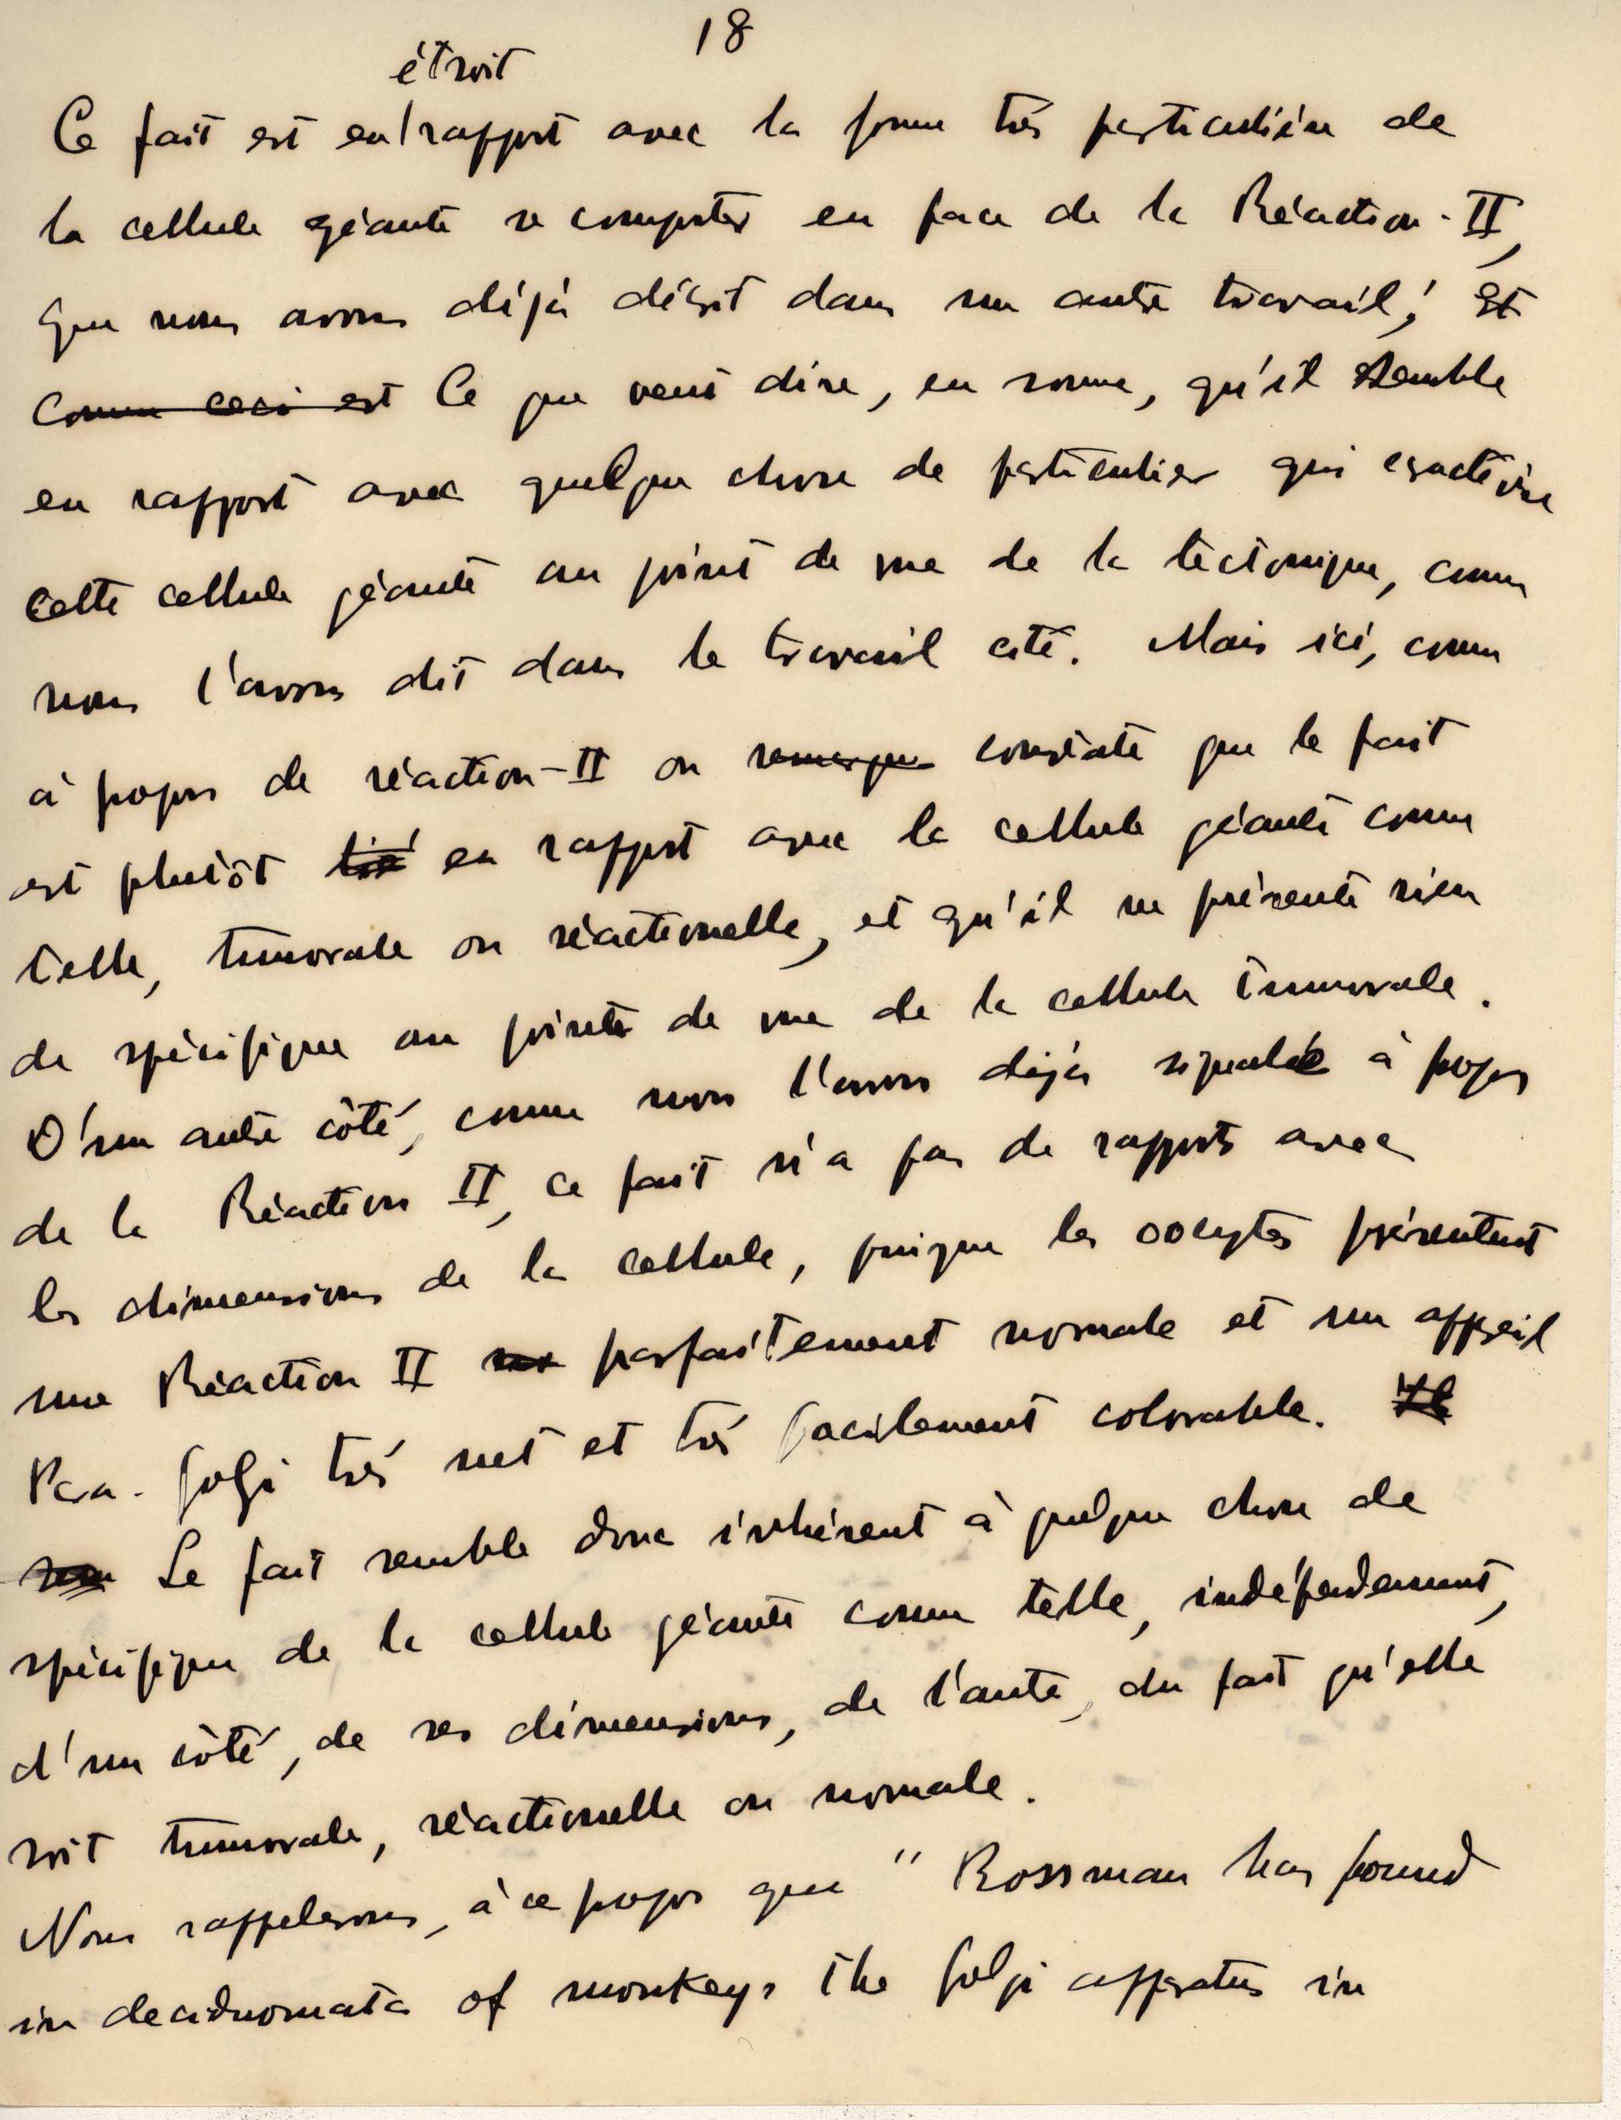 18
étroit
Ce fait est en rapport avec la forme très particulière de
la cellule géante se comporter en face de la Réaction-II,
que nous avons déjà décrit dans un autre travail; Et
Comme ceci est Ce que veut dire, en somme, qu'il semble
en rapport avec quelque chose de particulier qui caractérise
cette cellule géante au point de vue de la tectonique, comme
nous l'avons dit dans le travail cité. Mais ici, comme
à propos de réaction-II on remarque constate que le fait
est plutôt lié en rapport avec la cellule géante comme
telle, tumorale ou réactionelle, et qu'il ne présente rien
de spécifique au point de vue de la cellule tumorale.
D'un autre côté, comme nous l'avons déjà signalé à propos
de la Réaction II, ce fait n'a pas de rapports avec
les dimensions de la cellule, puisque les oocytes présentent
une Réaction II parfaitement normale et un appareil
Para-Golgi très net et très facilement colorable. Il
Le fait semble donc inhérent à quelque chose de
spécifique de la cellule géante comme telle, indépendamment,
d'un côté, de ses dimensions, de l'autre, du fait qu'elle
soit tumorale, réactionelle ou normale.
Nous rappelerons, à ce propos que " Rossman has found
in deciduomata of monkeys the Golgi apparatus in